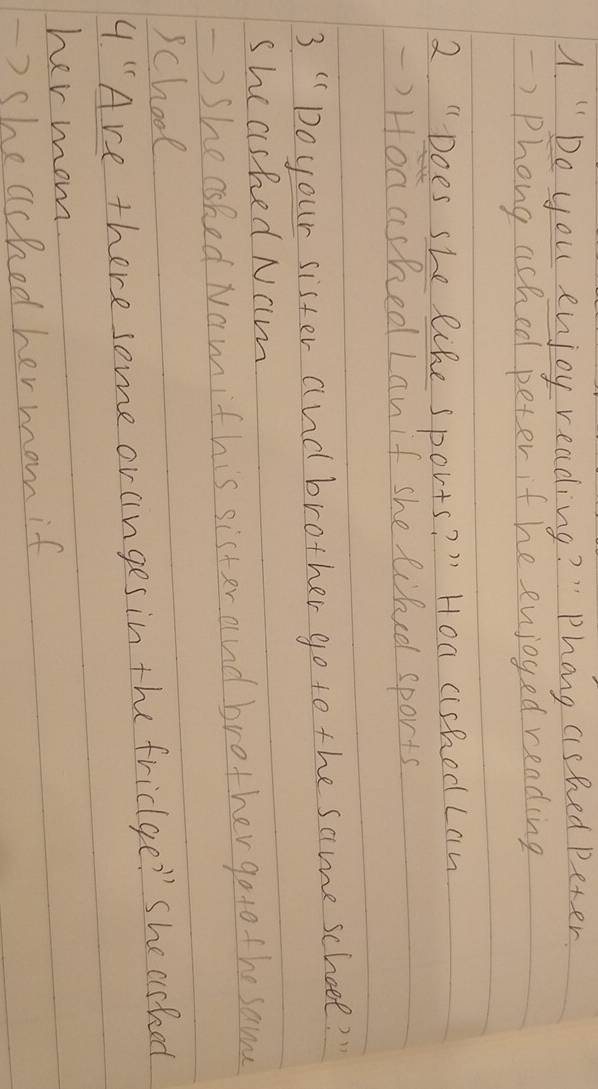 1 "Do you enjoy reading?" Phong asked Peter.
-> Phong asked peter if he enjoyed reading
2 "Does she like sports?" Hoa asked Lan
-> Hoa asked Lan if she liked sports
3 "Do your sister and brother go to the same school?"
she asked Nam
-> she asked Nam if his sister and brother go to the same
school
4. "Are there some oranges in the fridge?" she asked
her mom
-> she asked her mom if